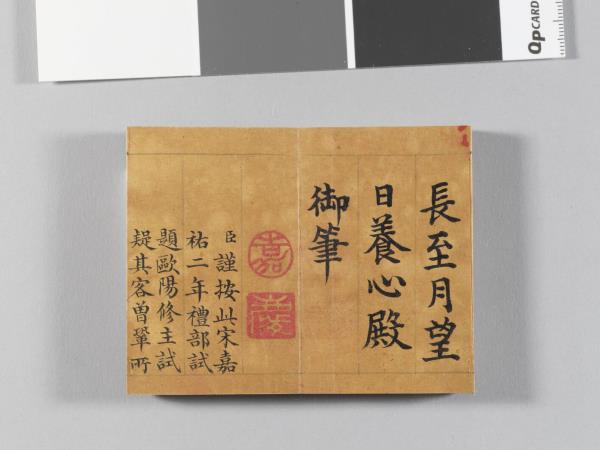 長至月望
日養心殿
御筆
嘉
慶
臣謹按此宋嘉
祐二年禮部試
題歐陽修主試
疑其客曾鞏所
QpCARD